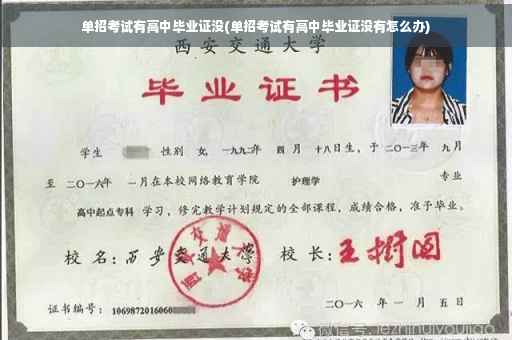 单招考试有高中毕业证没(单招考试有高中毕业证没有怎么办)
西安交通大学
毕业证书
学生 性别 女, 一九九二年 四月 十八日生, 于 二〇一三年 九月
至 二〇一六年 一月在本校网络教育学院 护理学 专业
高中起点专科 学习, 修完教学计划规定的全部课程, 成绩合格, 准予毕业。
校名: 西安交通大学 校长: 王树国
西安交通大学
证书编号: 1069872016060
二〇一六年 一月 五日
微信号: jezhihuiyoujiao